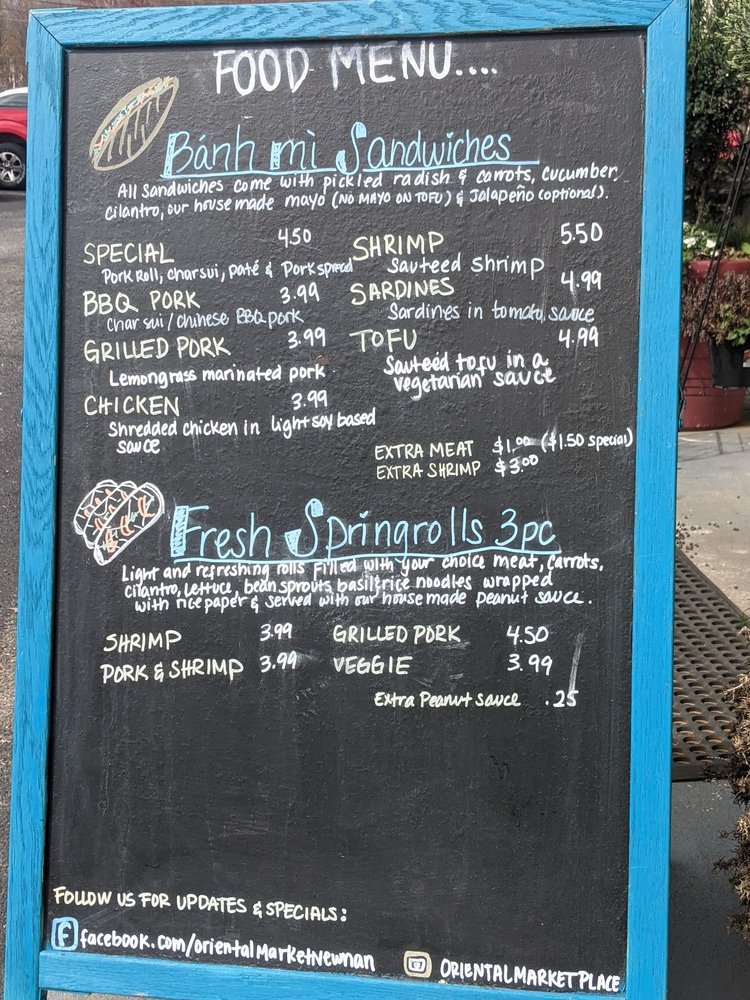 FOOD MENU....
Bánh mì Sandwiches
All sandwiches come with pickled radish & carrots, cucumber,
cilantro, our house made mayo (NO MAYO ON TOFU) & Jalapeño (optional).
SPECIAL 4.50
Pork Roll, char sui, paté & Pork spread
BBQ PORK 3.99
Char sui / Chinese BBQ pork
GRILLED PORK 3.99
Lemongrass marinated pork
CHICKEN 3.99
Shredded chicken in light soy based
sauce
SHRIMP 5.50
Sauteed Shrimp
SARDINES 4.99
Sardines in tomato sauce
TOFU 4.99
Sauteéd tofu in a
vegetarian sauce
EXTRA MEAT $1.00 ($1.50 special)
EXTRA SHRIMP $3.00
Fresh Springrolls 3pc
Light and refreshing rolls filled with your choice meat, carrots,
cilantro, lettuce, bean sprouts, basil & rice noodles wrapped
with rice paper & served with our house made peanut sauce.
SHRIMP 3.99
PORK & SHRIMP 3.99
GRILLED PORK 4.50
VEGGIE 3.99
Extra Peanut sauce .25
FOLLOW US FOR UPDATES & SPECIALS:
f facebook.com/orientalmarketnewnan
ORIENTALMARKETPLACE